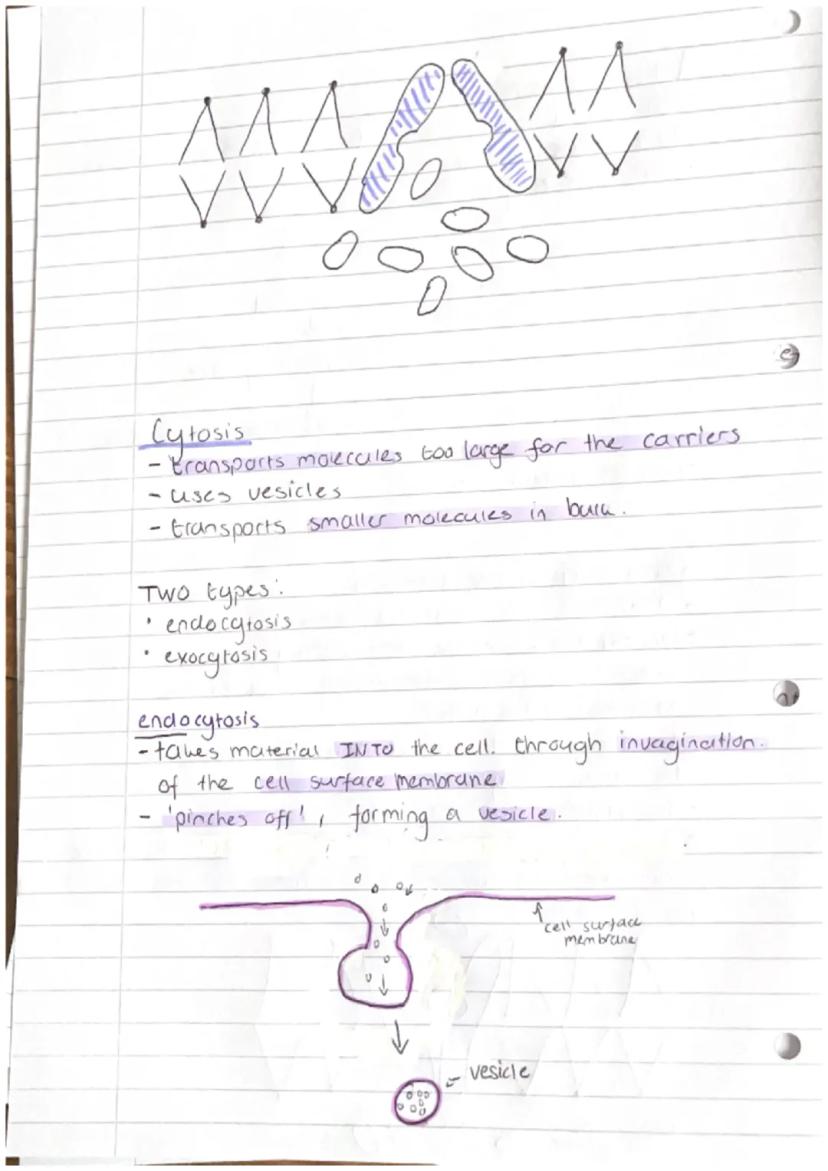 Cytosis
- transports molecules too large for the carriers
- uses vesicles
- transports smaller molecules in bulk.
Two types:
• endocytosis
• exocytosis
endocytosis
- takes material INTO the cell. through invagination.
of the cell surface membrane
- 'pinches off', forming a vesicle.
cell surface
membrane
vesicle